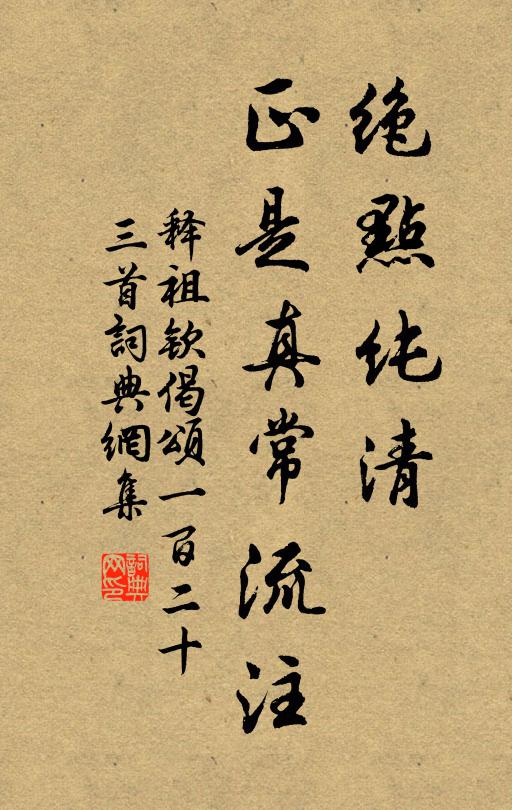 绝點纯清
正是真常流注
释祖钦偈頌一百二十
三首詞典網集
詞典网印